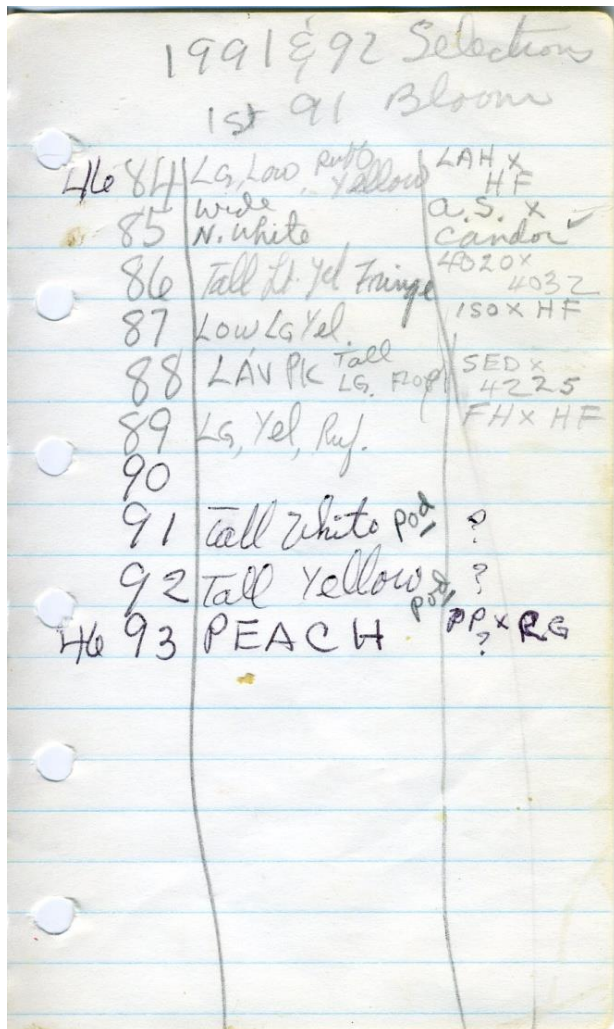 1991 & 92 Selections
1st 91 Bloom
46 84 LG, Low Ruff Yellow LAH x HF
85 Wide N. White A.S. x Candor ✓
86 Tall Lt. Yel Fringe 4020 x 4032
87 Low LG Yel. ISO x HF
88 LAV PK Tall LG. SED x 4225
89 LG, Yel, Ruf. FH x HF
90
91 Tall White pod ?
92 Tall Yellow pod ?
46 93 PEACH PP x RG ?